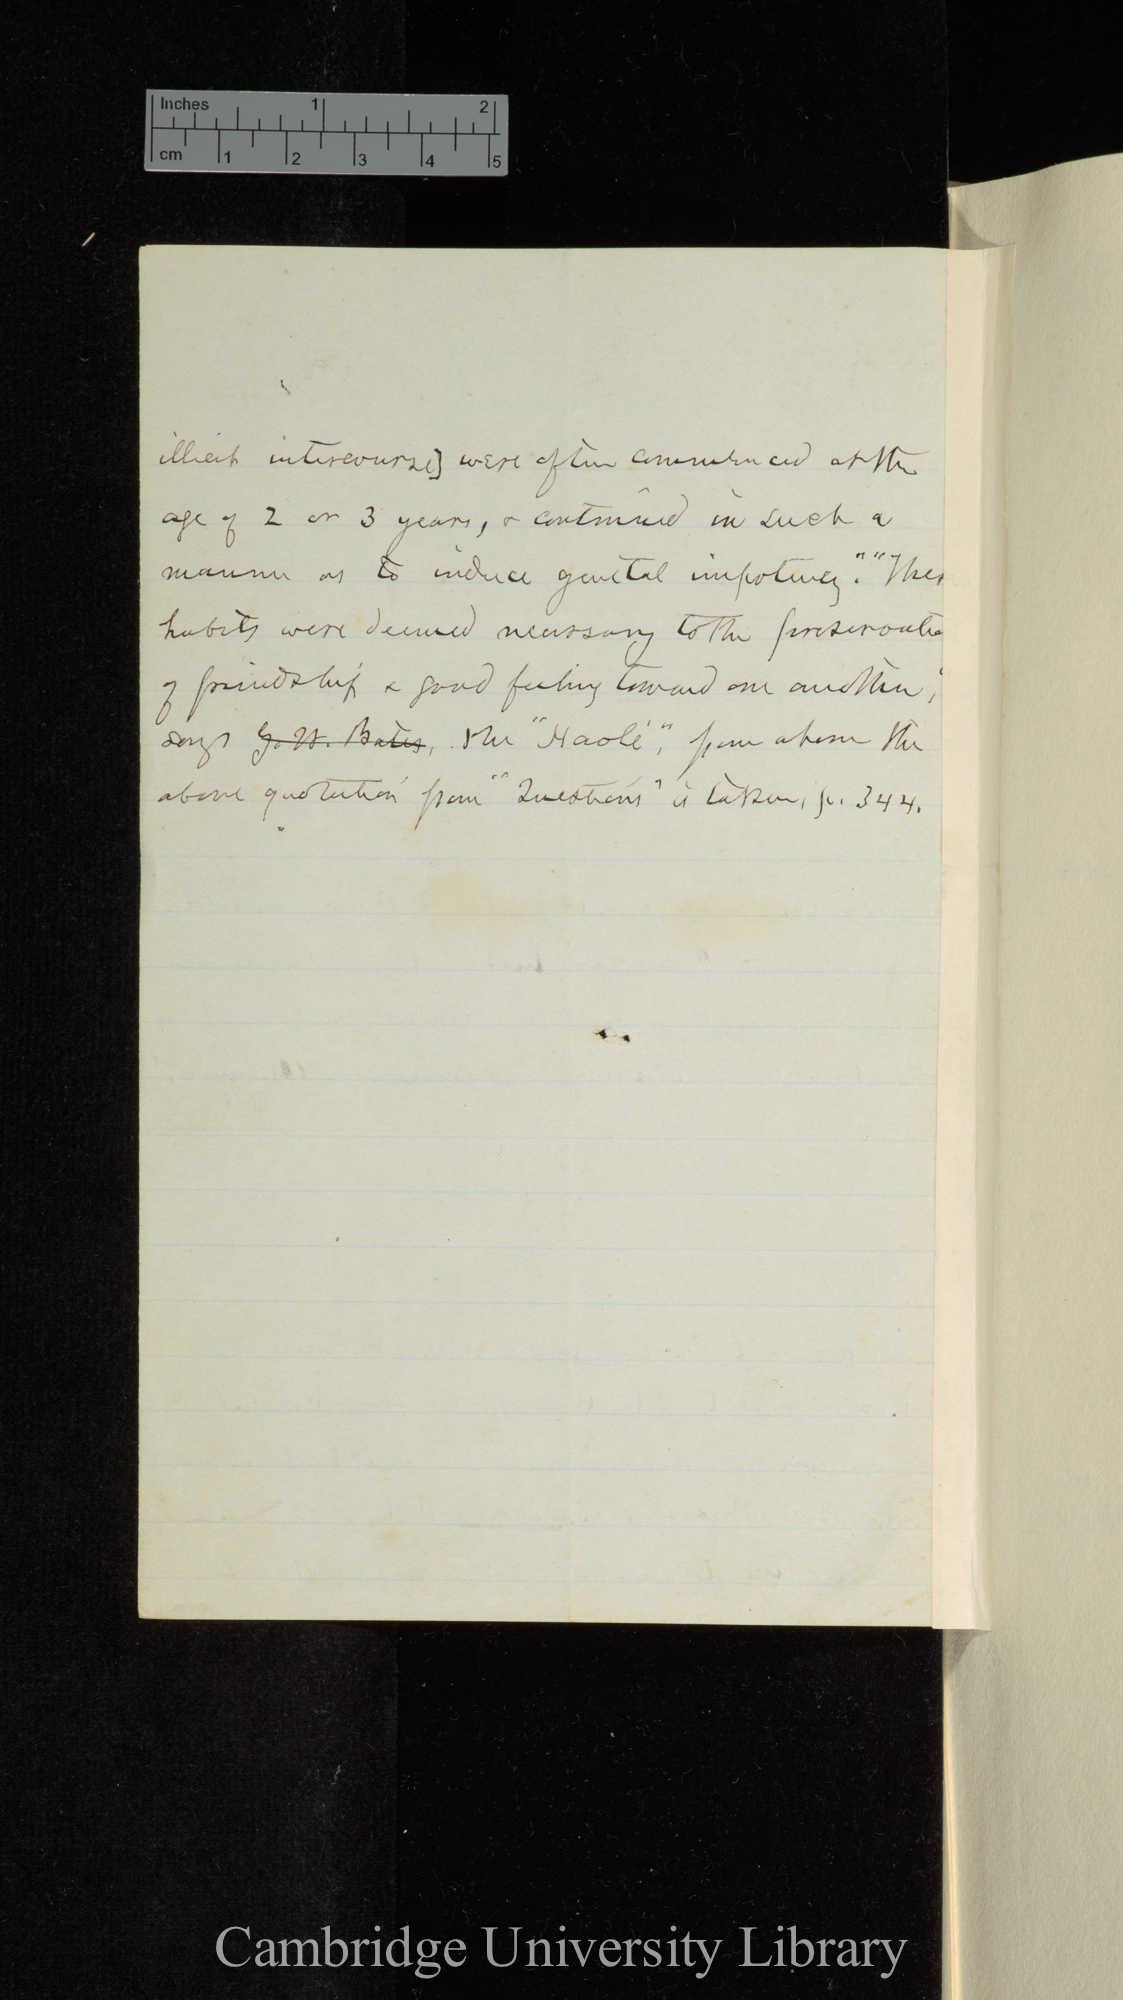 Inches 1 2
cm 1 2 3 4 5
illicit intercourse] were often commenced at the
age of 2 or 3 years, & continued in such a
manner as to induce genital impotency." "These
habits were deemed necessary to the preservation
of friendship & good feeling toward one another,"
says G. W. Bates, the "Haolé", from whom the
above quotation from "Questions" is taken, p. 344.
Cambridge University Library